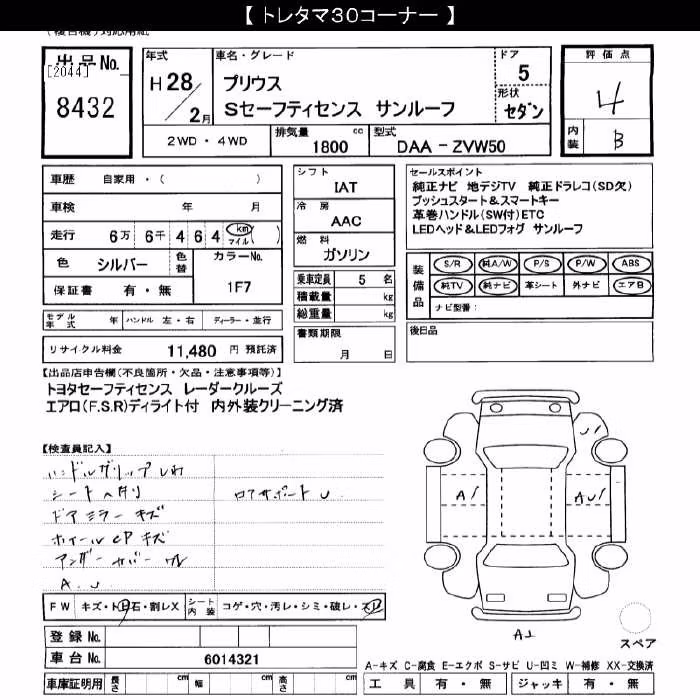 【 トレタマ３０コーナー 】
出品No.
[2044]
8432
年式
H28/2月
車名・グレード
プリウス
Sセーフティセンス サンルーフ
ドア
5
形状
セダン
評価点
4
内装
B
2WD・4WD
排気量 cc
1800
型式
DAA-ZVW50
車歴 自家用・( )
車検 年 月
走行 6万 6千 4 6 4 km マイル ( )
色 シルバー
色替
カラーNo.
1F7
保証書 有・無
シフト
IAT
冷房
AAC
燃料
ガソリン
乗車定員 5 名
積載量 kg
総重量 kg
書類期限
月 日
セールスポイント
純正ナビ 地デジTV 純正ドラレコ(SD欠)
プッシュスタート＆スマートキー
革巻ハンドル(SW付)ETC
LEDヘッド＆LEDフォグ サンルーフ
装備品
S/R 純A/W P/S P/W ABS
純TV 純ナビ 革シート 外ナビ エアB
ナビ型番:
後日品
モデル年式 年 ハンドル 左・右 ディーラー・並行
リサイクル料金 11,480 円 預託済
【出品店申告欄(不良箇所・欠品・注意事項等)】
トヨタセーフティセンス レーダークルーズ
エアロ(F.S.R)ディライト付 内外装クリーニング済
【検査員記入】
ハンドルグリップ
シートヘタリ ロアサポートU
ドアミラーキズ
ホイールCPキズ
アンダーカバー
A.U
FW キズ・トビ石・割レX
シート内装 コゲ・穴・汚レ・シミ・破レ・スレ
登録No.
車台No. 6014321
車庫証明用 長さ cm 幅 cm 高さ cm
U1
A1
AU1
A1
スペア
A-キズ C-腐食 E-エクボ S-サビ U-凹ミ W-補修 XX-交換済
工具 有・無 ジャッキ 有・無